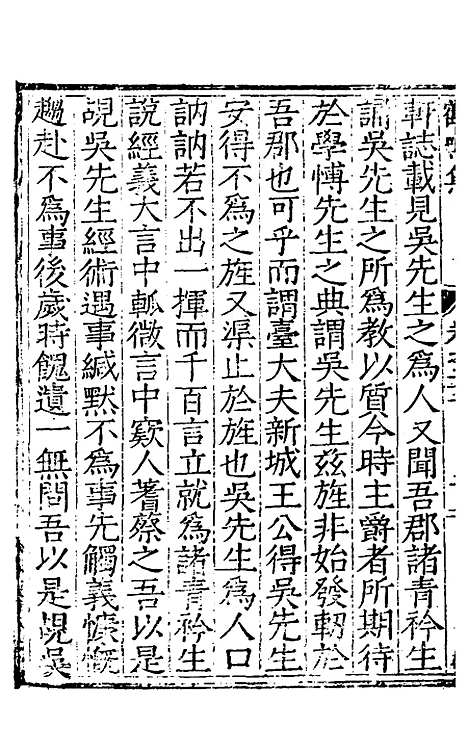 軒誌載見吳先生之為人又聞吾郡諸青衿生
誦吳先生之所為教以質今時主爵者所期待
於學愽先生之典謂吳先生茲旌非始發軔於
吾郡也可乎而謂臺大夫新城王公得吳先生
安得不為之旌又渠止於旌也吳先生為人口
訥訥若不出一揮而千百言立就為諸青衿生
說經義大言中軱微言中窾人蓍蔡之吾以是
覘吳先生經術遇事緘默不為事先觸義慷慨
趨赴不為事後歲時餽遺一無問吾以是覘吳